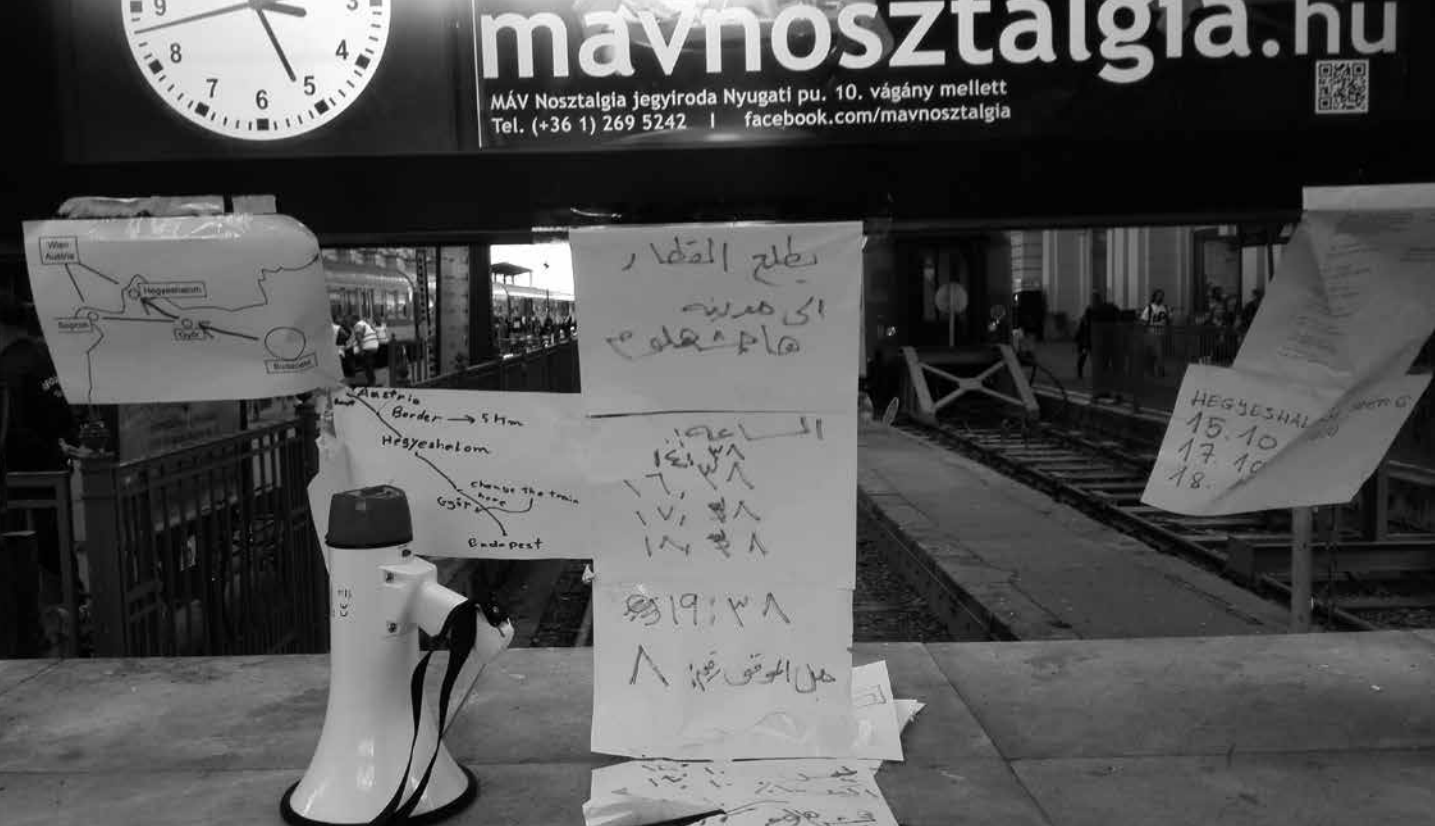 9
3
8
4
7
5
6
mavnosztalgia.hu
MÁV Nosztalgia jegyiroda Nyugati pu. 10. vágány mellett
Tel. (+36 1) 269 5242 | facebook.com/mavnosztalgia
Wien
Austria
Hegyeshalom
Sopron
Győr
Budapest
Austria
Border → 5 Km
Hegyeshalom
change the train
here
Győr
Budapest
يطلع القطار
الى مدينه
الساعه:
١٤:٣٨
١٦:٣٨
١٧:٣٨
١٨:٣٨
١٩:٣٨
رقم: ٨
HEGYESHAL
15.10
17.10
18.